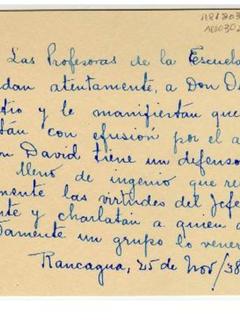 Las Profesoras de la Escuela
dan atentamente, a Don D
tio y le manifiestan que
tán con efusión por el a
on David tiene un defensor
lleno de ingenio que re
mente las virtudes del Jefe
te y charlatán a quien
damente un grupo lo vener
Rancagua, 25 de Nov/38